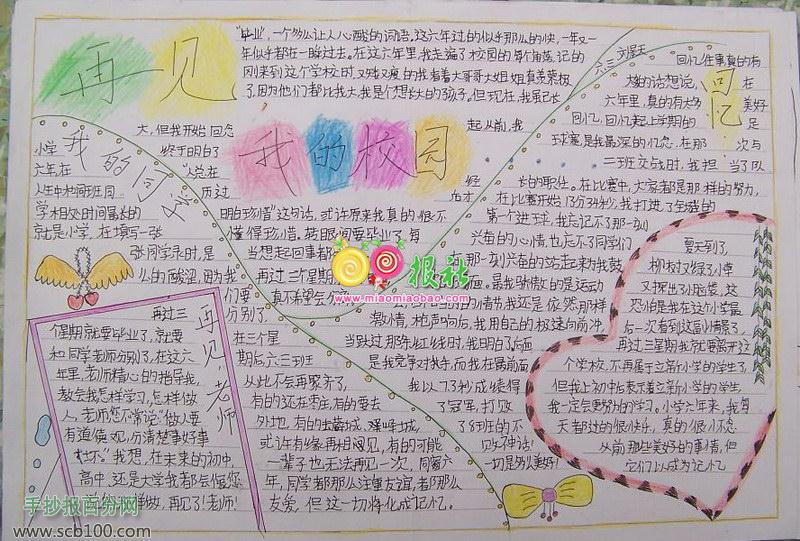 再见
我的校园
"毕业",一个多么让人心酸的词语,这六年过的似乎那么的快,一年又一
年似乎都在一瞬过去。在这六年里,我走遍了校园的每个角落,记的
刚来到这个学校时,
了,因为他们都比我大,我是个想长大的孩子。但现在,我真已长
大,但我开始回念
起从前,我
终于明白了
"人总在
经历过
后才
明白珍惜"这句话,或许原来我真的很不
懂得珍惜。转眼间要毕业了,每
当想起回事都
再过三个星期
真不希望会分
我的同学
小学
六年在
人生中
学相处时间最长的
就是小学,在填写一张
张同学录时,是
么的酸涩,因为我
们要
分别了。
在三个星
期后六三班
从此不会再聚齐了,
有的还在枣庄,有的要去
外地,有的去薛城、
或许有缘再相间见,有的可能
一辈子也无法再见一次,同窗六
年,同学都那么注重友谊,者那么
友爱,但这一切将化成记忆。
再见,老师
再过三
个星期就要毕业了,就要
和同学老师分别了,在这六
年里,老师精心的指导我,
教会我怎样学习,怎样做
人,老师您不常说"做人要
有道德观,分清楚事好事
坏。"我想,在未来的初中,
高中,还是大学我都会像您
样做,再见了!老师!
六三 刘昊王
回忆
回忆往事真的有
在
六年里,真的有太多美好
回忆,回忆起上学期的足
球赛,是我最深的忆念,在那一次与
二班交战时,我担当了队
长的职位。在比赛中,大家者是那样的努力,
在比赛开始13分34秒,我打进了全场的
第一个进球,我忘记不了那一刻
兴奋的心情,也忘不了同学们
那一刻兴奋的站起来为我鼓
最骄傲的是运动
我还是依然那样
激情,枪声响后,我用自己的极速向前冲,
当跑过那年红线时,我明白了后面
是我竞争对手,而我在最前面
我以7.3秒成绩得
了冠军,打败
了8班的不
败神话!
一切是多么美好!
夏天到了,
柳树又绿了,小草
又探出了小脑袋,这
恐怕是我在这个学最
后一次看到这副情景了,
再过三星期我就要离开这
个学校,不再属于立新小学的学生了,
但我上初中后表示着立新小学的学生,
我一定会更努力的学习。小学六年来,我每
天者过的很快乐,真的很小怀念
从前那些美好的事情,但
它们以成为记忆
报社
www.miaomiaobao.com
手抄报百分网
www.scb100.com